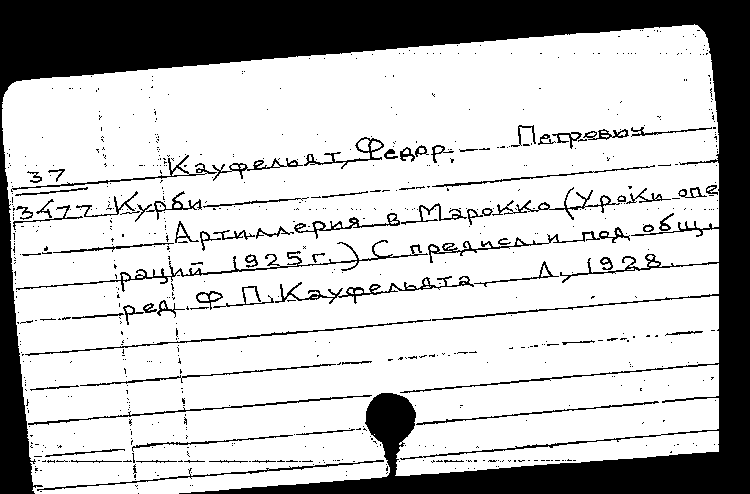 37 Кауфельдт, Федор Петрович
3477 Курби
Артиллерия в Марокко (Уроки опе
раций 1925 г.) С предисл. и под общ.
ред. Ф. П. Кауфельдта. Л., 1928.